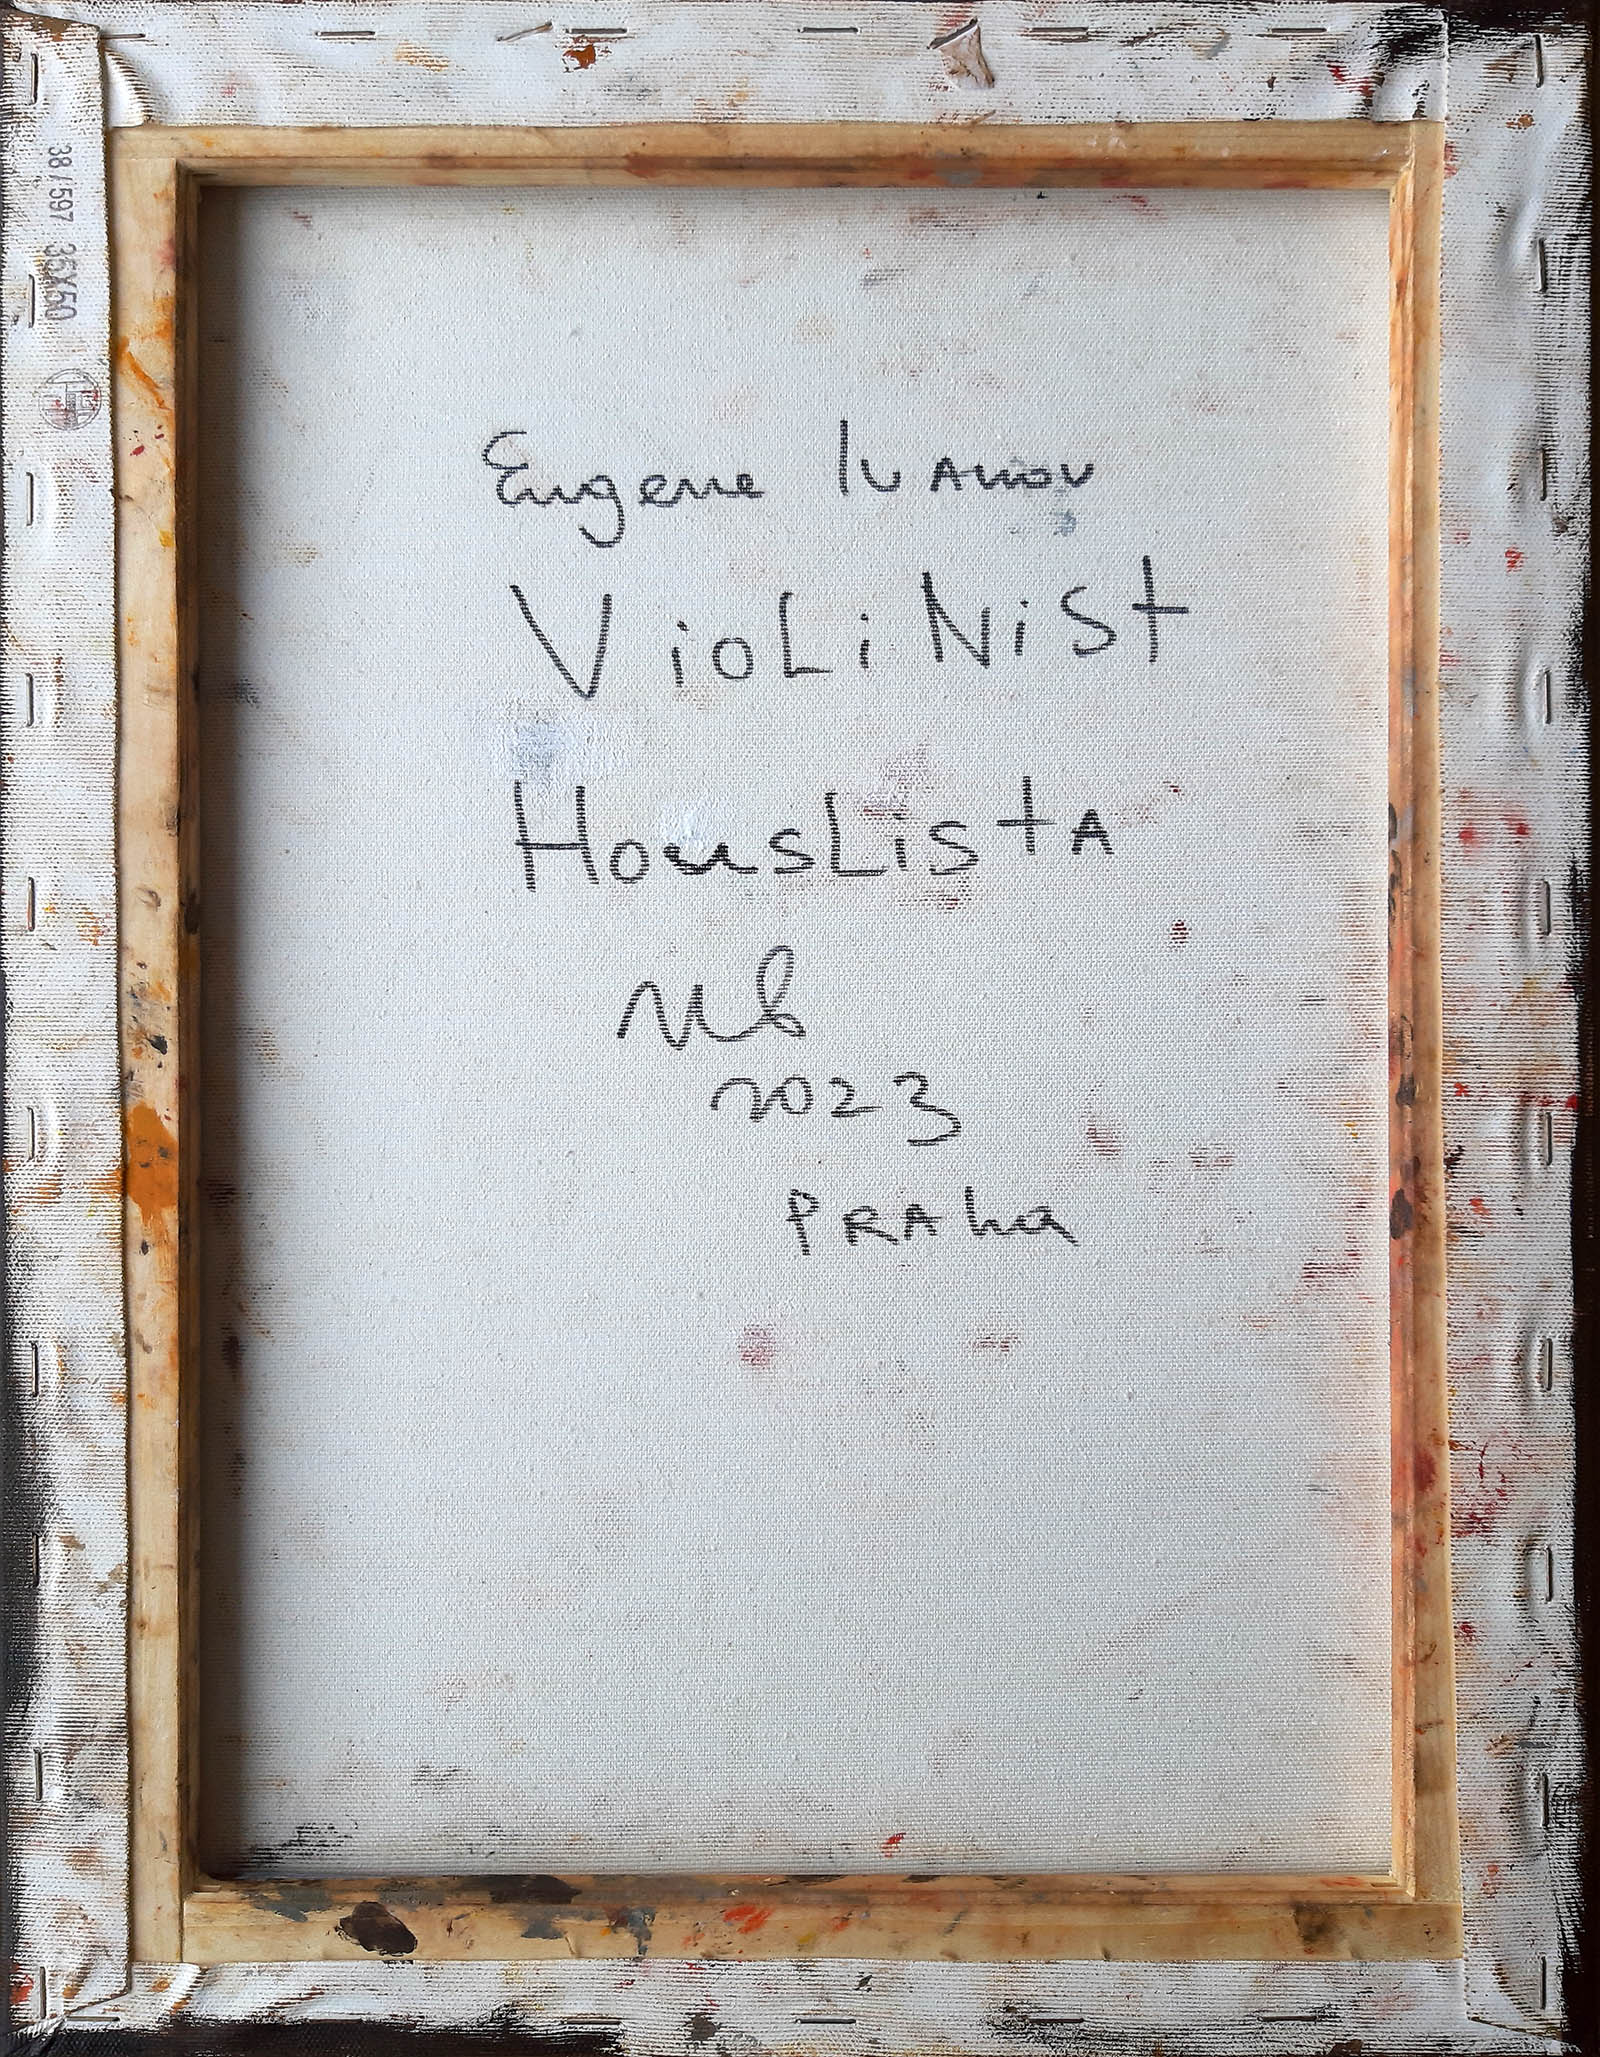 38/597 35X50
Eugene Ivanov
VioLiNist
HousListA
2023
PRAha